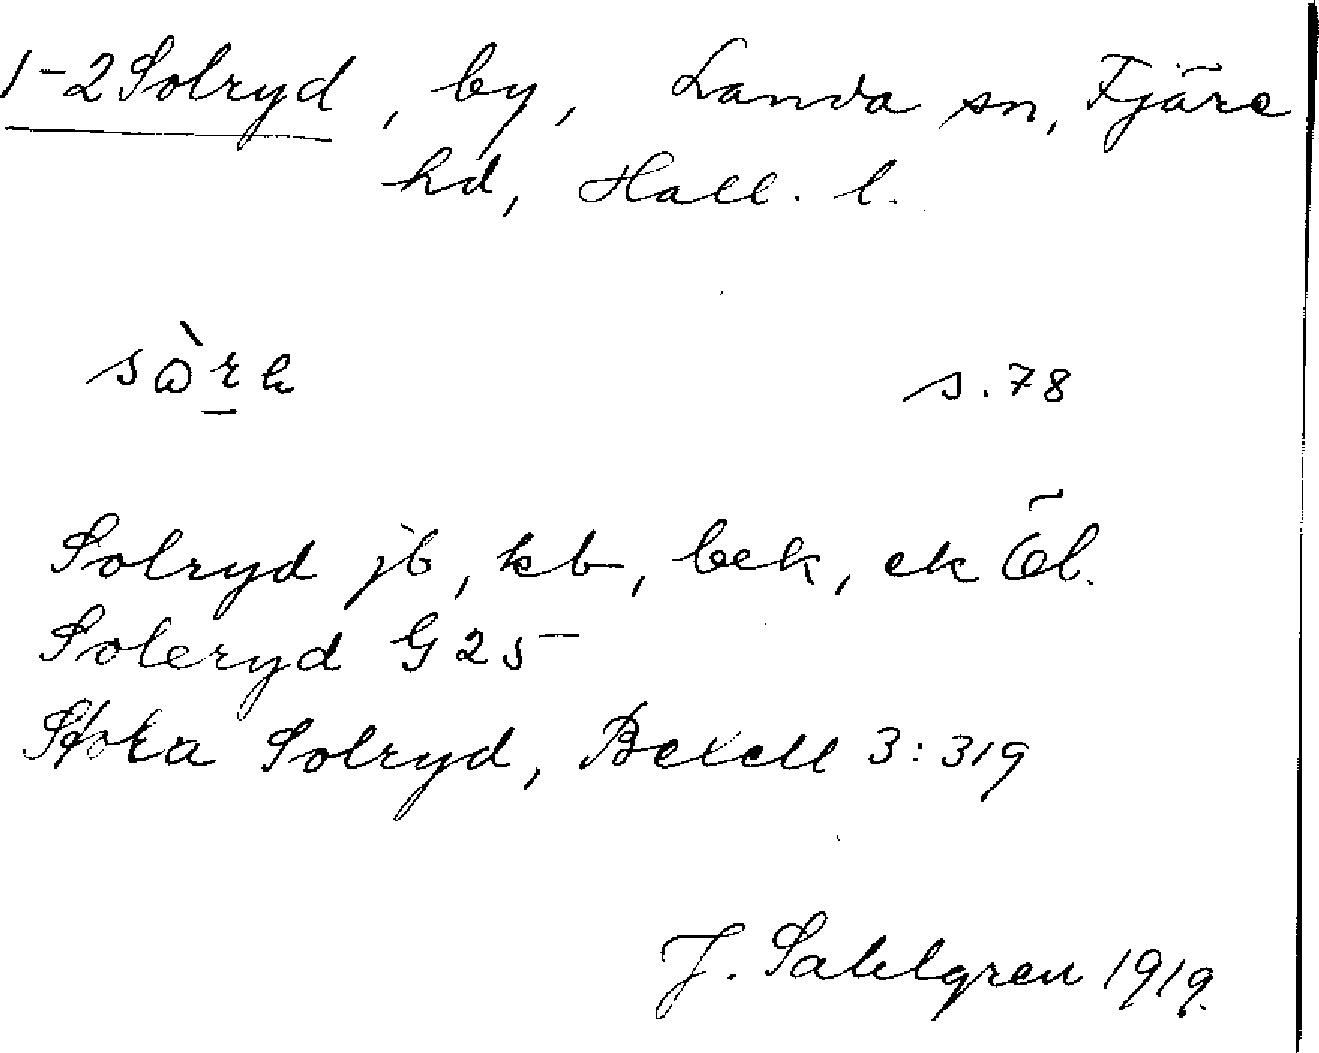 1-2 Solryd, by, Landa sn, Fjäre
hd, Hall. l.
s. 78
Solryd jb, kb, bek, ek Öb.
Soleryd G 25
Stora Solryd, Bexell 3:319
J. Sahlgren 1919.